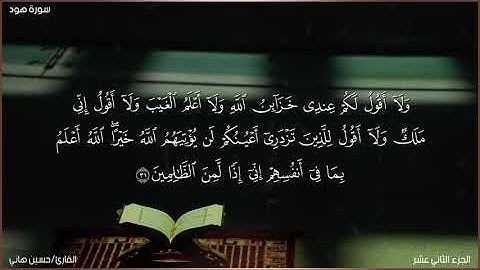 سورة هود
وَلَآ أَقُولُ لَكُمْ عِندِى خَزَآئِنُ ٱللَّهِ وَلَآ أَعْلَمُ ٱلْغَيْبَ وَلَآ أَقُولُ إِنِّى
مَلَكٌ وَلَآ أَقُولُ لِلَّذِينَ تَزْدَرِىٓ أَعْيُنُكُمْ لَن يُؤْتِيَهُمُ ٱللَّهُ خَيْرًا ۖ ٱللَّهُ أَعْلَمُ
بِمَا فِىٓ أَنفُسِهِمْ إِنِّىٓ إِذًا لَّمِنَ ٱلظَّٰلِمِينَ ٣١
الجزء الثاني عشر
القارئ/حسين هاني